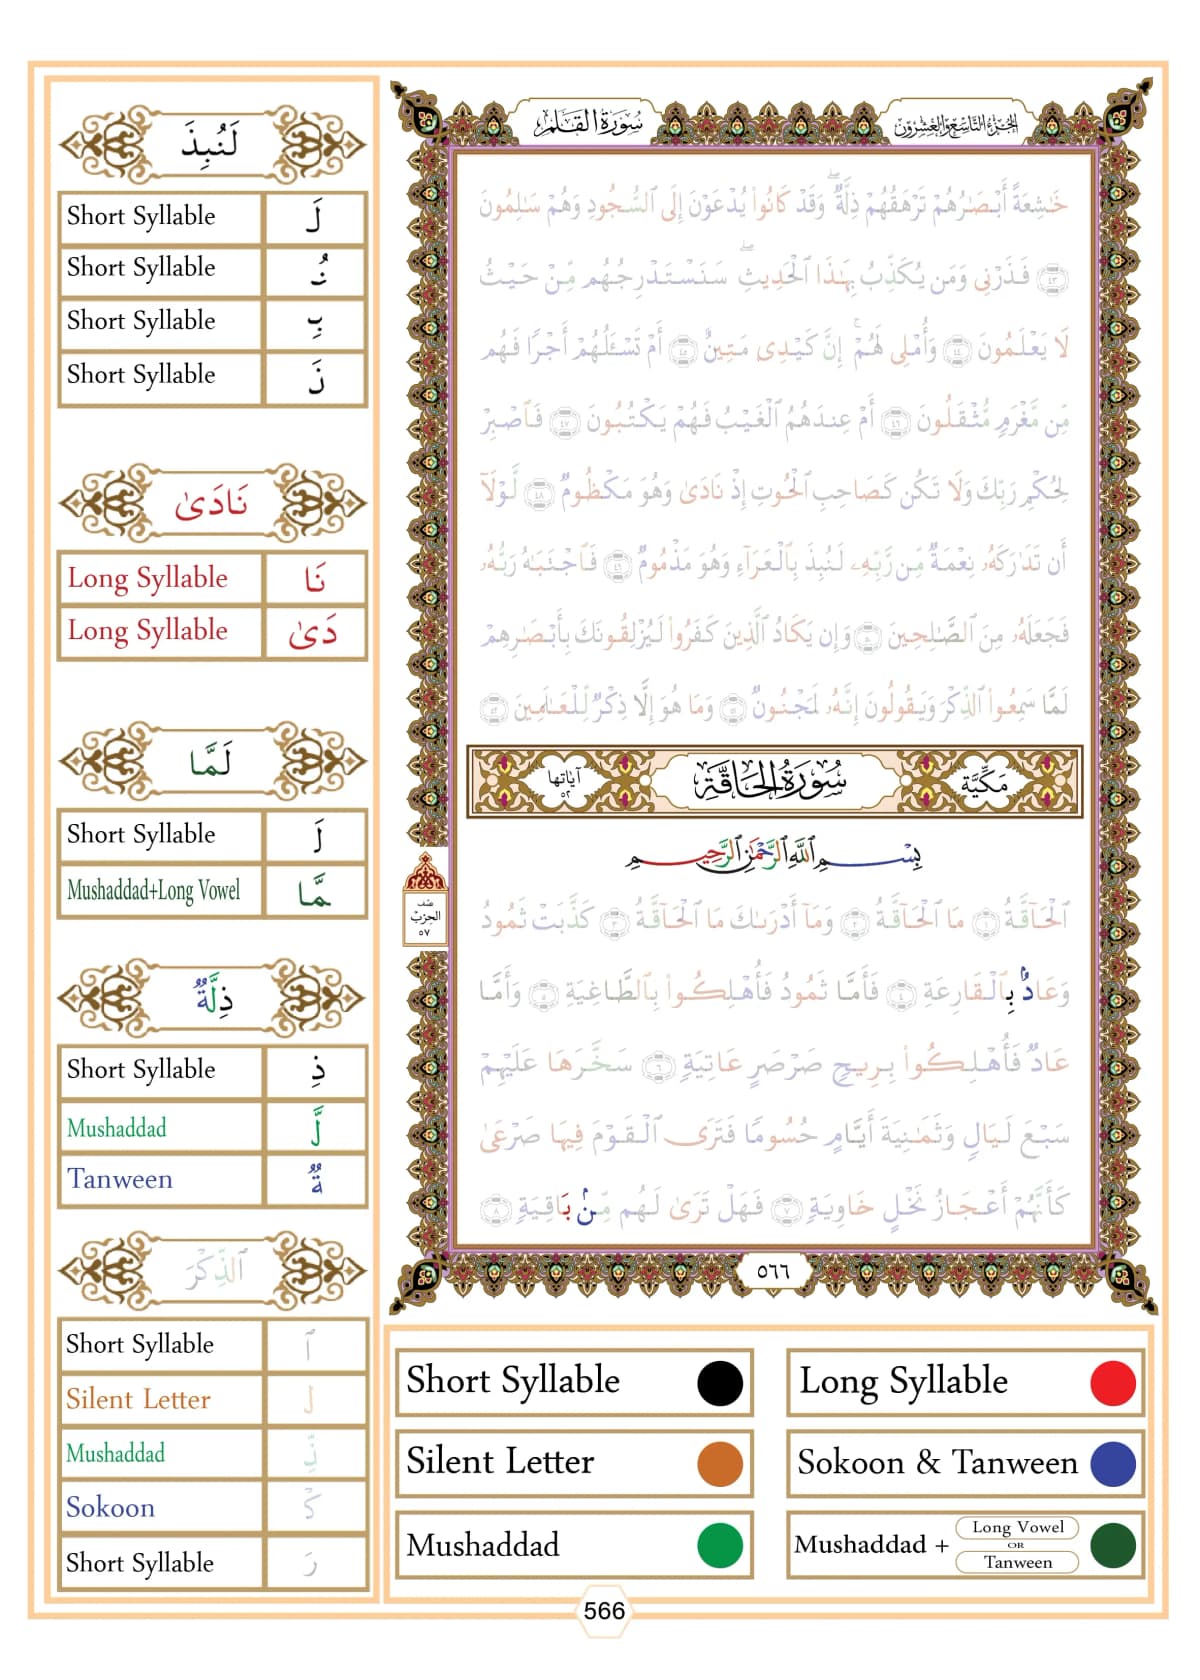 سُورَةُ القَلَم
الجُزْءُ التَّاسِعُ وَالعِشْرُونَ
خَٰشِعَةً أَبْصَٰرُهُمْ تَرْهَقُهُمْ ذِلَّةٌۖ وَقَدْ كَانُوا۟ يُدْعَوْنَ إِلَى ٱلسُّجُودِ وَهُمْ سَٰلِمُونَ
٤٣ فَذَرْنِى وَمَن يُكَذِّبُ بِهَٰذَا ٱلْحَدِيثِۖ سَنَسْتَدْرِجُهُم مِّنْ حَيْثُ
لَا يَعْلَمُونَ ٤٤ وَأُمْلِى لَهُمْۚ إِنَّ كَيْدِى مَتِينٌ ٤٥ أَمْ تَسْـَٔلُهُمْ أَجْرًا فَهُم
مِّن مَّغْرَمٍ مُّثْقَلُونَ ٤٦ أَمْ عِندَهُمُ ٱلْغَيْبُ فَهُمْ يَكْتُبُونَ ٤٧ فَٱصْبِرْ
لِحُكْمِ رَبِّكَ وَلَا تَكُن كَصَاحِبِ ٱلْحُوتِ إِذْ نَادَىٰ وَهُوَ مَكْظُومٌ ٤٨ لَّوْلَآ
أَن تَدَٰرَكَهُۥ نِعْمَةٌ مِّن رَّبِّهِۦ لَنُبِذَ بِٱلْعَرَآءِ وَهُوَ مَذْمُومٌ ٤٩ فَٱجْتَبَٰهُ رَبُّهُۥ
فَجَعَلَهُۥ مِنَ ٱلصَّٰلِحِينَ ٥٠ وَإِن يَكَادُ ٱلَّذِينَ كَفَرُوا۟ لَيُزْلِقُونَكَ بِأَبْصَٰرِهِمْ
لَمَّا سَمِعُوا۟ ٱلذِّكْرَ وَيَقُولُونَ إِنَّهُۥ لَمَجْنُونٌ ٥١ وَمَا هُوَ إِلَّا ذِكْرٌ لِّلْعَٰلَمِينَ ٥٢
مَكِّيَّة سُورَةُ الحَاقَّةِ آياتها ٥٢
بِسْمِ ٱللَّهِ ٱلرَّحْمَٰنِ ٱلرَّحِيمِ
ٱلْحَآقَّةُ ١ مَا ٱلْحَآقَّةُ ٢ وَمَآ أَدْرَىٰكَ مَا ٱلْحَآقَّةُ ٣ كَذَّبَتْ ثَمُودُ
وَعَادٌۢ بِٱلْقَارِعَةِ ٤ فَأَمَّا ثَمُودُ فَأُهْلِكُوا۟ بِٱلطَّاغِيَةِ ٥ وَأَمَّا
عَادٌ فَأُهْلِكُوا۟ بِرِيحٍ صَرْصَرٍ عَاتِيَةٍ ٦ سَخَّرَهَا عَلَيْهِمْ
سَبْعَ لَيَالٍ وَثَمَٰنِيَةَ أَيَّامٍ حُسُومًا فَتَرَى ٱلْقَوْمَ فِيهَا صَرْعَىٰ
كَأَنَّهُمْ أَعْجَازُ نَخْلٍ خَاوِيَةٍ ٧ فَهَلْ تَرَىٰ لَهُم مِّنۢ بَاقِيَةٍ ٨
٥٦٦
نصف
الحزب
٥٧
لَنُبِذَ
Short Syllable لَ
Short Syllable نُ
Short Syllable بِ
Short Syllable ذَ
نَادَىٰ
Long Syllable نَا
Long Syllable دَىٰ
لَمَّا
Short Syllable لَ
Mushaddad+Long Vowel مَّا
ذِلَّةٌ
Short Syllable ذِ
Mushaddad لَّ
Tanween ةٌ
ٱلذِّكْرَ
Short Syllable ٱ
Silent Letter ل
Mushaddad ذِّ
Sokoon كْ
Short Syllable رَ
Short Syllable
Long Syllable
Silent Letter
Sokoon & Tanween
Mushaddad
Mushaddad + Long Vowel OR Tanween
566